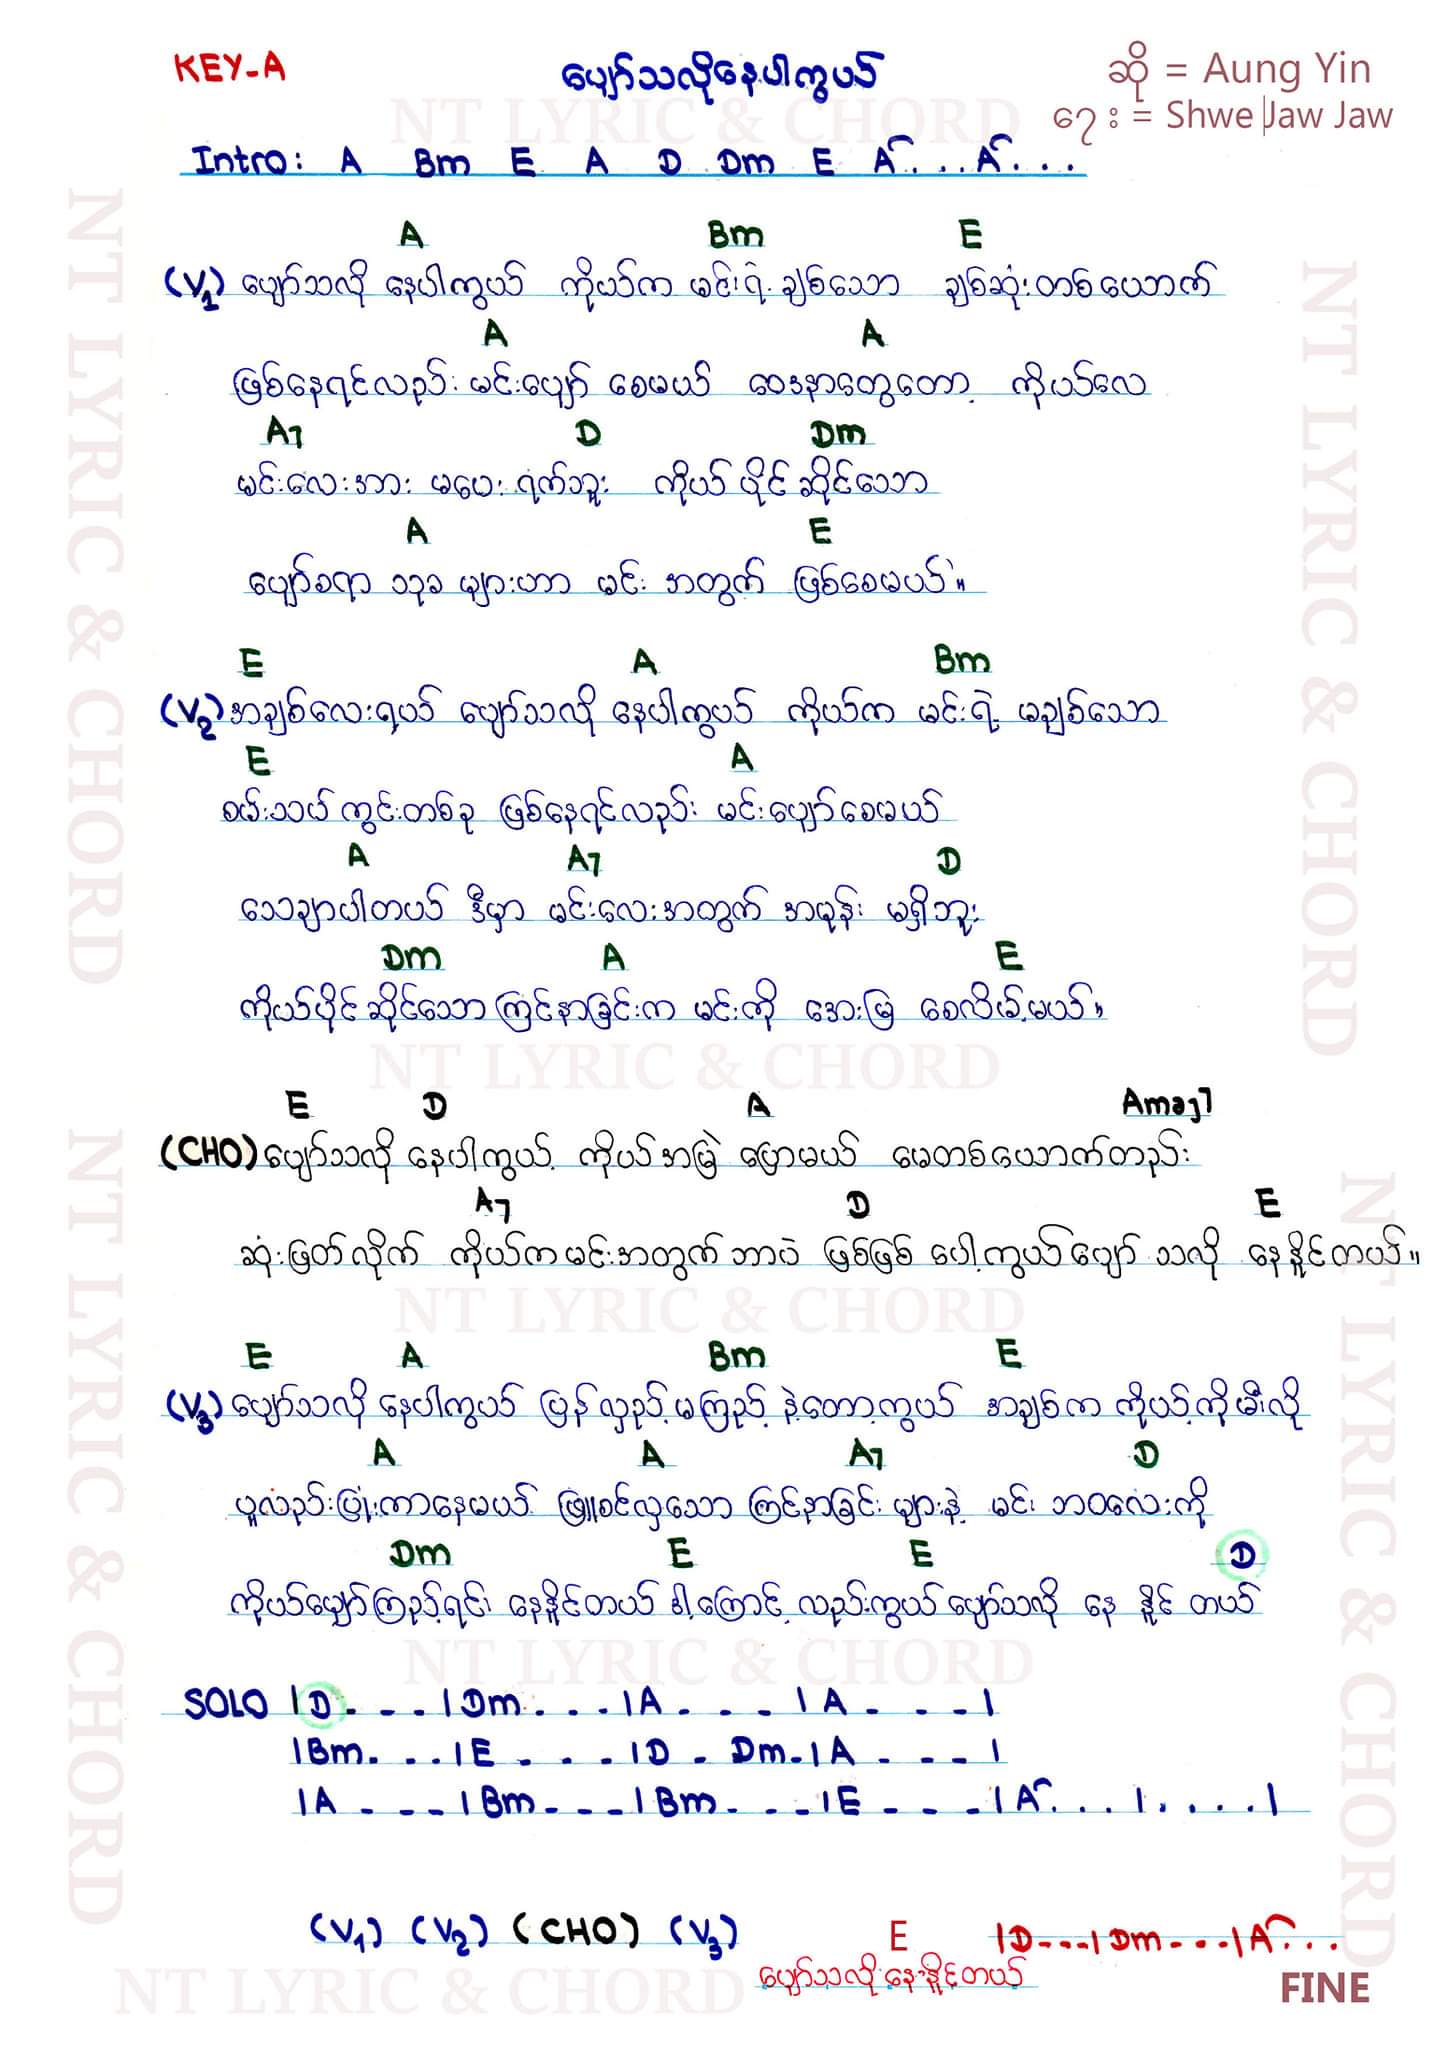 KEY-A
ပျော်သလိုနေပါကွယ်
ဆို = Aung Yin
ရေး = Shwe Jaw Jaw
NT LYRIC & CHORD
Intro: A Bm E A D Dm E A... A...
A Bm E
(V1) ပျော်သလို နေပါကွယ် ကိုယ်က မင်းရဲ့ ချစ်သော ချစ်ဆုံးတစ်ယောက်
A A
ဖြစ်နေရင်လည်း မင်းပျော် စေမယ် ဝေဒနာတွေတော့ ကိုယ်လေ
A7 D Dm
မင်းလေးအား မပေးရက်ဘူး ကိုယ် ပိုင်ဆိုင်သော
A E
ပျော်စရာ သုခ များဟာ မင်း အတွက် ဖြစ်စေမယ်။
E A Bm
(V2) အချစ်လေးရယ် ပျော်သလို နေပါကွယ် ကိုယ်က မင်းရဲ့ မချစ်သော
E A
စမ်းသပ်ကွင်းတစ်ခု ဖြစ်နေရင်လည်း မင်းပျော်စေမယ်
A A7 D
သေချာပါတယ် ဒီမှာ မင်းလေးအတွက် အမုန်း မရှိဘူး
Dm A E
ကိုယ်ပိုင်ဆိုင်သော ကြင်နာခြင်းက မင်းကို အေးမြ စေလိမ့်မယ်။
NT LYRIC & CHORD
E D A Amaj7
(CHO) ပျော်သလို နေပါကွယ် ကိုယ်အမြဲ ပြောမယ် မေတစ်ယောက်တည်း
A7 D E
ဆုံးဖြတ်လိုက် ကိုယ်ကမင်းအတွက်ဘာပဲ ဖြစ်ဖြစ် ပေါ့ကွယ်ပျော် သလို နေနိုင်တယ်။
NT LYRIC & CHORD
E A Bm E
(V3) ပျော်သလို နေပါကွယ် ပြန်လှည့်မကြည့်နဲ့တော့ကွယ် အချစ်က ကိုယ့်ကိုမီးလို
A A A7 D
ပူလည်းပြုံးကာနေမယ် ဖြူစင်လှသော ကြင်နာခြင်း များနဲ့ မင်း ဘဝလေးကို
Dm E E D
ကိုယ်မျှော်ကြည့်ရင်း နေနိုင်တယ် ဒါ့ကြောင့် လည်းကွယ် ပျော်သလို နေ နိုင် တယ်
NT LYRIC & CHORD
SOLO |D - - -|Dm - - -|A - - -|A - - -|
|Bm - - -|E - - -|D - Dm -|A - - -|
|A - - -|Bm - - -|Bm - - -|E - - -|A...|....|
(V1) (V2) (CHO) (V3) E |D---|Dm---|A...
ပျော်သလို နေနိုင်တယ်
FINE
NT LYRIC & CHORD
NT LYRIC & CHORD
NT LYRIC & CHORD
NT LYRIC & CHORD
NT LYRIC & CHORD